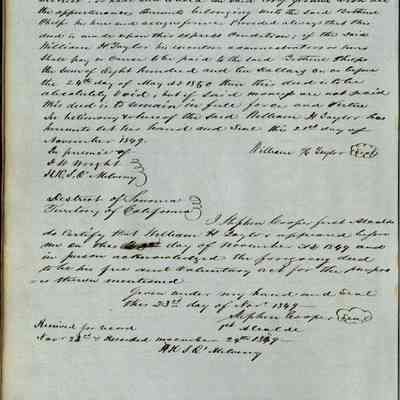 the appurtenances thereunto belonging unto the said Bethuel
Phelps his heirs and assigns forever Provided always that this
deed is made upon this express Condition; if the said
William H Taylor his executors administrators or heirs
shall pay or cause to be paid to the said Bethuel Phelps
the sum of Eight Hundred and ten Dollars on or before
the day of May A.D 1850 then this deed is to be
absolutely Void, but if Said money are not paid
this deed is to remain in full force and Virtue
In testimony whereof the said William H Taylor has
presents set his hand and Seal this 21st day of
November 1849.
In presence of
William H Taylor Seal
Wright
H.R.S. O'Melveny
District of Sonoma
Territory of California
I Stephen Cooper first Alcalde
do Certify that William H Taylor appeared before
me on this day of November A.D 1849 and
in person acknowledged the foregoing deed
to be his free and Voluntary act for the purpos
es therein mentioned
Given under my hand and Seal
this 23rd day of Nov 1849
Stephen Cooper Seal
1st Alcalde
Received for record
Nov & Recorded 24th 1849
H.R.S. O'Melveny